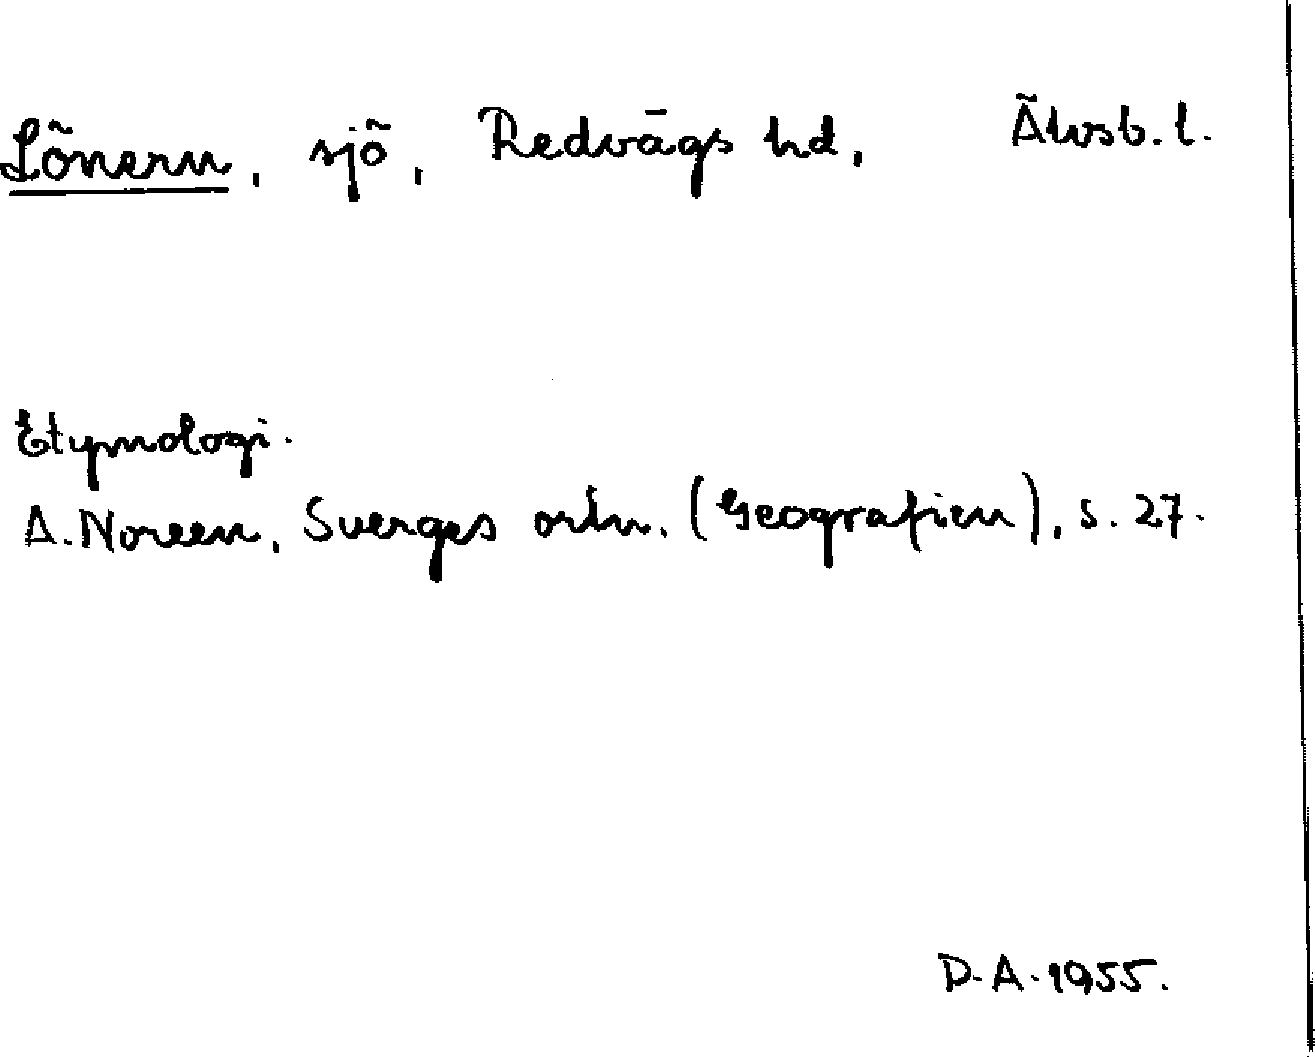 Lönern, sjö, Redvägs hd, Älvsb. l.
Etymologi.
A. Noreen, Sverges ortn. (Geografien), s. 27.
D. A. 1955.